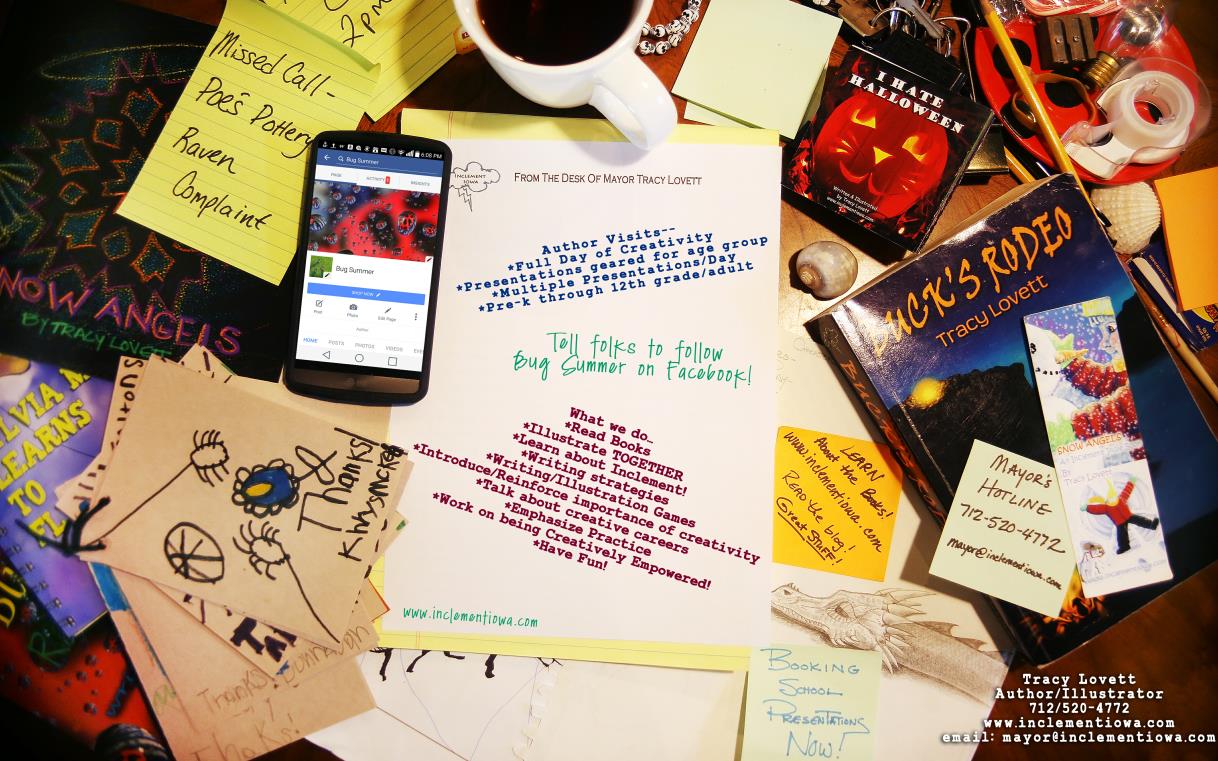 7PM
Missed Call-
Poe's Pottery
Raven
Complaint
6:08 PM
Bug Summer
PAGE
ACTIVITY
INSIGHTS
Bug Summer
SHOP NOW
Post
Photo
Edit Page
Author
HOME POSTS PHOTOS VIDEOS
INCLEMENT
IOWA
FROM THE DESK OF MAYOR TRACY LOVETT
Author Visits--
*Full Day of Creativity
*Presentations geared for age group
*Multiple Presentations/Day
*Pre-k through 12th grade/adult
Tell folks to follow
Bug Summer on Facebook!
What we do…
*Read Books
*Illustrate TOGETHER
*Learn about Inclement!
*Writing strategies
*Writing/Illustration Games
*Introduce/Reinforce importance of creativity
*Talk about creative careers
*Emphasize Practice
*Work on being Creatively Empowered!
*Have Fun!
www.inclementiowa.com
I HATE
HALLOWEEN
Written & Illustrated
by Tracy Lovett
www.inclementiowa.com
BUCK'S RODEO
Tracy Lovett
SNOW ANGELS
MAYOR'S
HOTLINE
712-520-4772
mayor@inclementiowa.com
LEARN
About the Books!
www.inclementiowa.com
READ the blog!
Great STUFF!
BOOKING
SCHOOL
PRESENTATIONS
NOW!
SNOW ANGELS
BY TRACY LOVETT
LEARNS
TO
Thanks!
Thanks!
Tracy Lovett
Author/Illustrator
712/520-4772
www.inclementiowa.com
email: mayor@inclementiowa.com